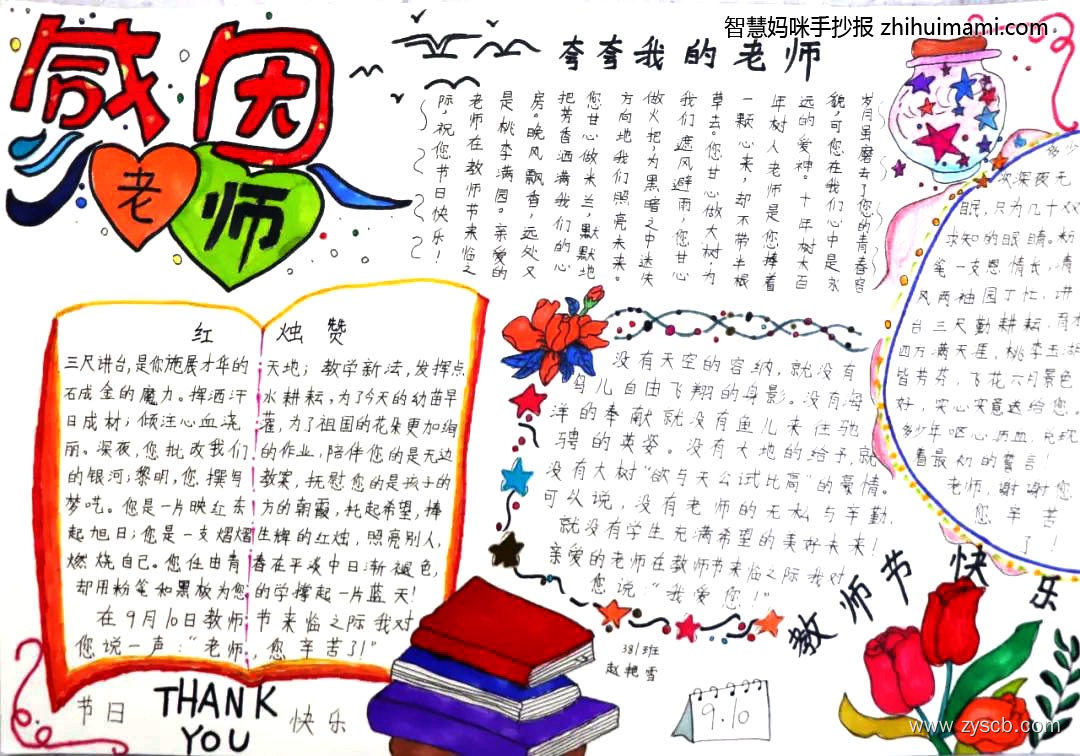 智慧妈咪手抄报 zhihuimami.com
感恩
老师
夸夸我的老师
岁月虽磨去了您的青春容
貌,可您在我们心中是永
远的爱神。十年树木百
年树人老师是您捧着
一颗心来,却不带半根
草去。您甘心做大树,为
我们遮风避雨,您甘心
做火把,为黑暗之中迷失
方向地我们照亮未来。
您甘心做米兰,默默地
把芳香洒满我们的心
房。晚风飘香,远处又
是桃李满园。亲爱的
老师在教师节来临之
际,祝您节日快乐!
红烛赞
三尺讲台,是你施展才华的天地;教学新法,发挥点
石成金的魔力。挥洒汗水耕耘,为了今天的幼苗早
日成材;倾注心血浇灌,为了祖国的花朵更加绚
丽。深夜,您批改我们的作业,陪伴您的是无边
的银河;黎明,您撰写教案,抚慰您的是孩子的
梦呓。您是一片映红东方的朝霞,托起希望,捧
起旭日;您是一支熠熠生辉的红烛,照亮别人,
燃烧自己。您任由青春在平淡中日渐褪色,
却用粉笔和黑板为您的学撑起一片蓝天!
在9月10日教师节来临之际我对
您说一声:“老师,您辛苦了!”
没有天空的容纳,就没有
鸟儿自由飞翔的身影。没有海
洋的奉献就没有鱼儿来往驰
骋的英姿。没有大地的给予,就
没有大树“欲与天公试比高”的豪情。
可以说,没有老师的无私与辛勤,
就没有学生充满希望的美好未来!
亲爱的老师在教师节来临之际我对
您说:“我爱您!”
多少
次深夜无
眠,只为几十双
求知的眼睛。粉
笔一支恩情长,清
风两袖园丁忙,讲
台三尺勤耕耘,育木
四方满天涯,桃李五湖
皆芳芬,飞花六月景色
好,实心实意送给您。
多少年呕心沥血,兑现
着最初的誓言!
老师,谢谢您
您辛苦
了!
教师节快乐
381班
赵艳雪
9.10
节日
THANK
YOU
快乐
www.zyscb.com